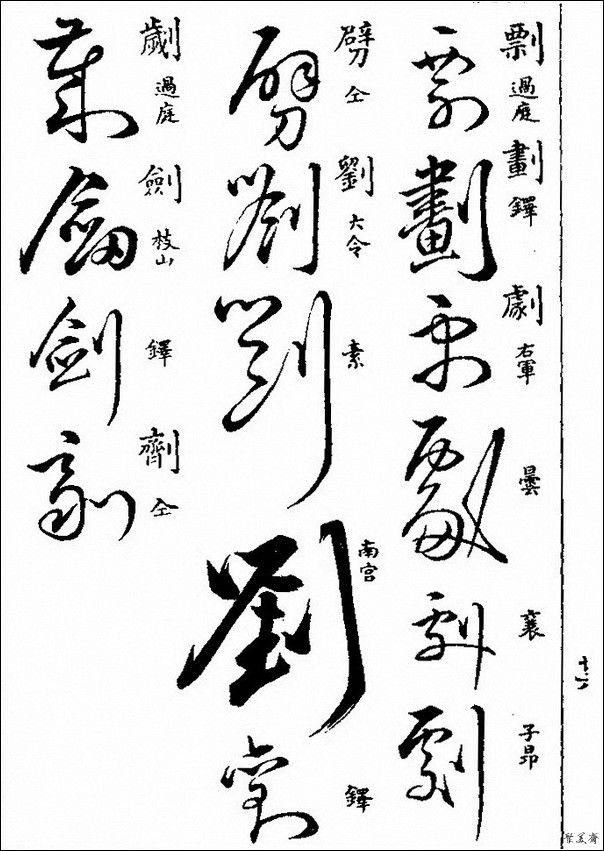 剽 過庭
劃 鐸
劇 右軍
曇
襄
子昂
劈 仝
劉 大令
素
南宮
鐸
劌 過庭
劍 枝山
鐸
劑 仝